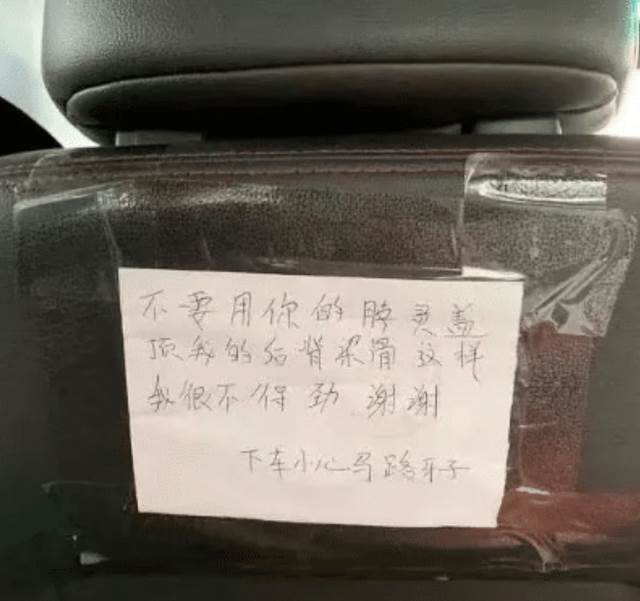 不要用你的胳灵盖
顶我的后背梁骨这样
我很不得劲 谢谢
下车小心马路牙子